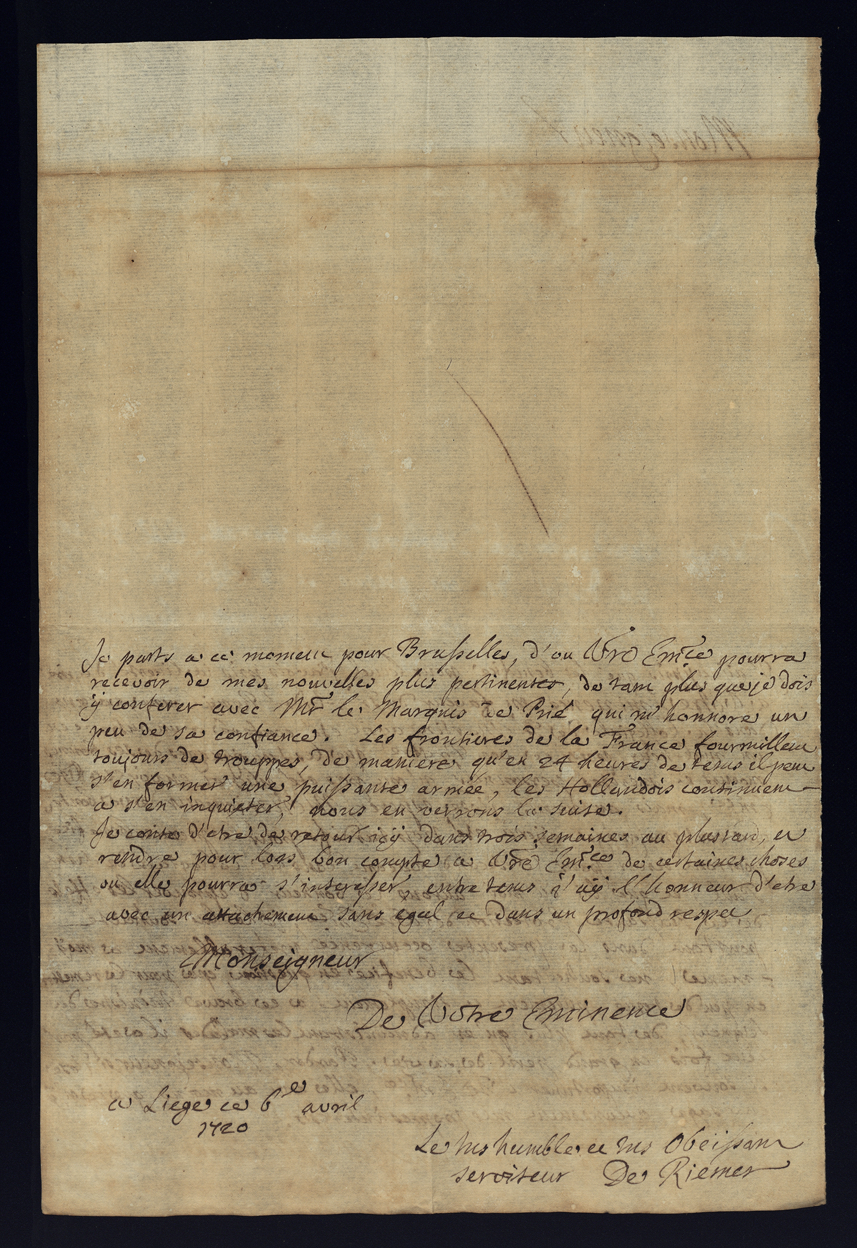 Je parts a ce moment pour Brusselles, d'ou Vre Emce pourra
recevoir de mes nouvelles plus pertinentes, de tant plus que je dois
y conferer avec Mr le Marquis de Prié, qui m'honnore un
peu de sa confiance. Les frontieres de la France fourmillent
toujours de trouppes, de maniere qu'en 24 heures de tems il peut
s'en former une puissante armée, les Hollandois continuent
a s'en inquieter, nous en verrons la suite.
Je conte d'etre de retour icÿ dans trois semaines au plustard, et
rendre pour lors bon compte a Vre Emce de certaines choses
ou elle pourra s'interesser, entre tems j'aÿ l'honneur d'etre
avec un attachement sans egal et dans un profond respect
Monseigneur
De Votre Eminence
a Liege ce 6de avril
1720
Le tres humble et tres Obeissant
serviteur De Riemer